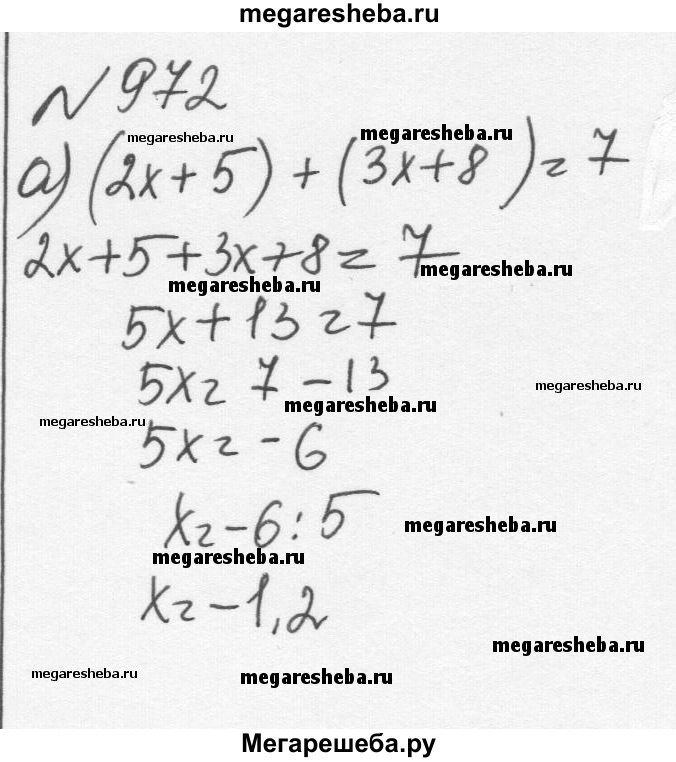 megaresheba.ru
№ 972
megaresheba.ru megaresheba.ru
а) (2x + 5) + (3x + 8) = 7
2x + 5 + 3x + 8 = 7
megaresheba.ru megaresheba.ru
5x + 13 = 7
5x = 7 - 13
megaresheba.ru megaresheba.ru
megaresheba.ru
5x = - 6
x = - 6 : 5
megaresheba.ru
megaresheba.ru
x = - 1,2
megaresheba.ru
megaresheba.ru megaresheba.ru
Мегарешеба.ру